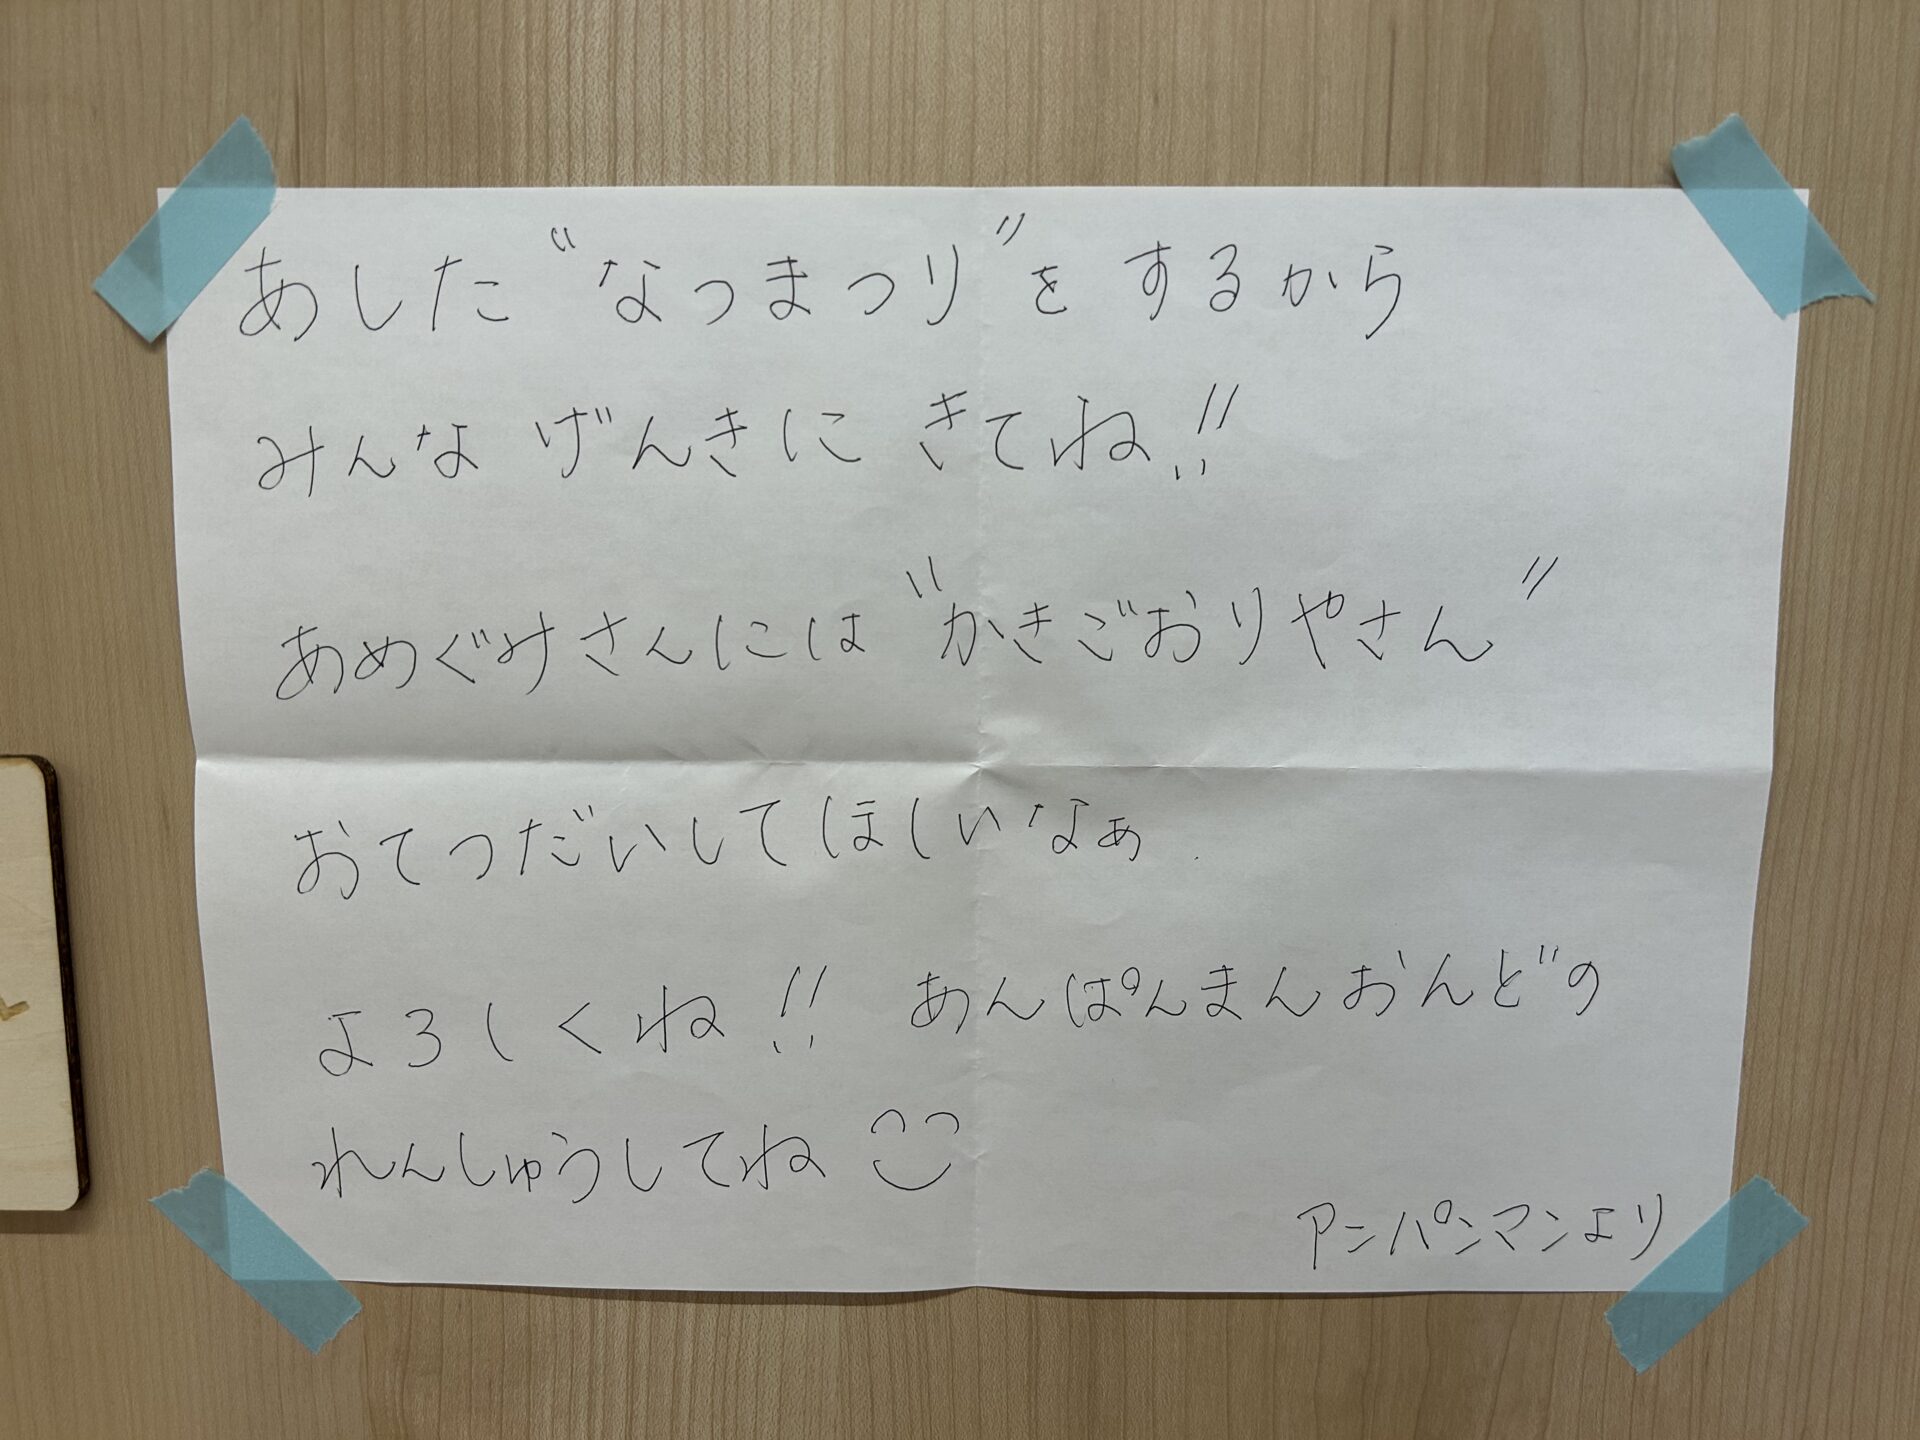 あした"なつまつり"をするから
みんな げんきに きてね!!
あめぐみさんには"かきごおりやさん"
おてつだいしてほしいなぁ.
よろしくね!! あんぱんまんおんどの
れんしゅうしてね
アンパンマンより